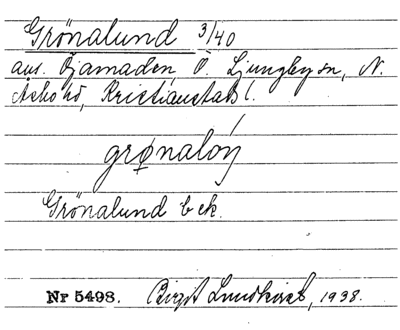 Grönalund 3/40
aus. Öjamaden, Ö. Ljungby sn, N.
Åsbo hd, Kristianstads l.
grønalón
Grönalund bek.
Nr 5498. Birgit Lundkvist, 1938.